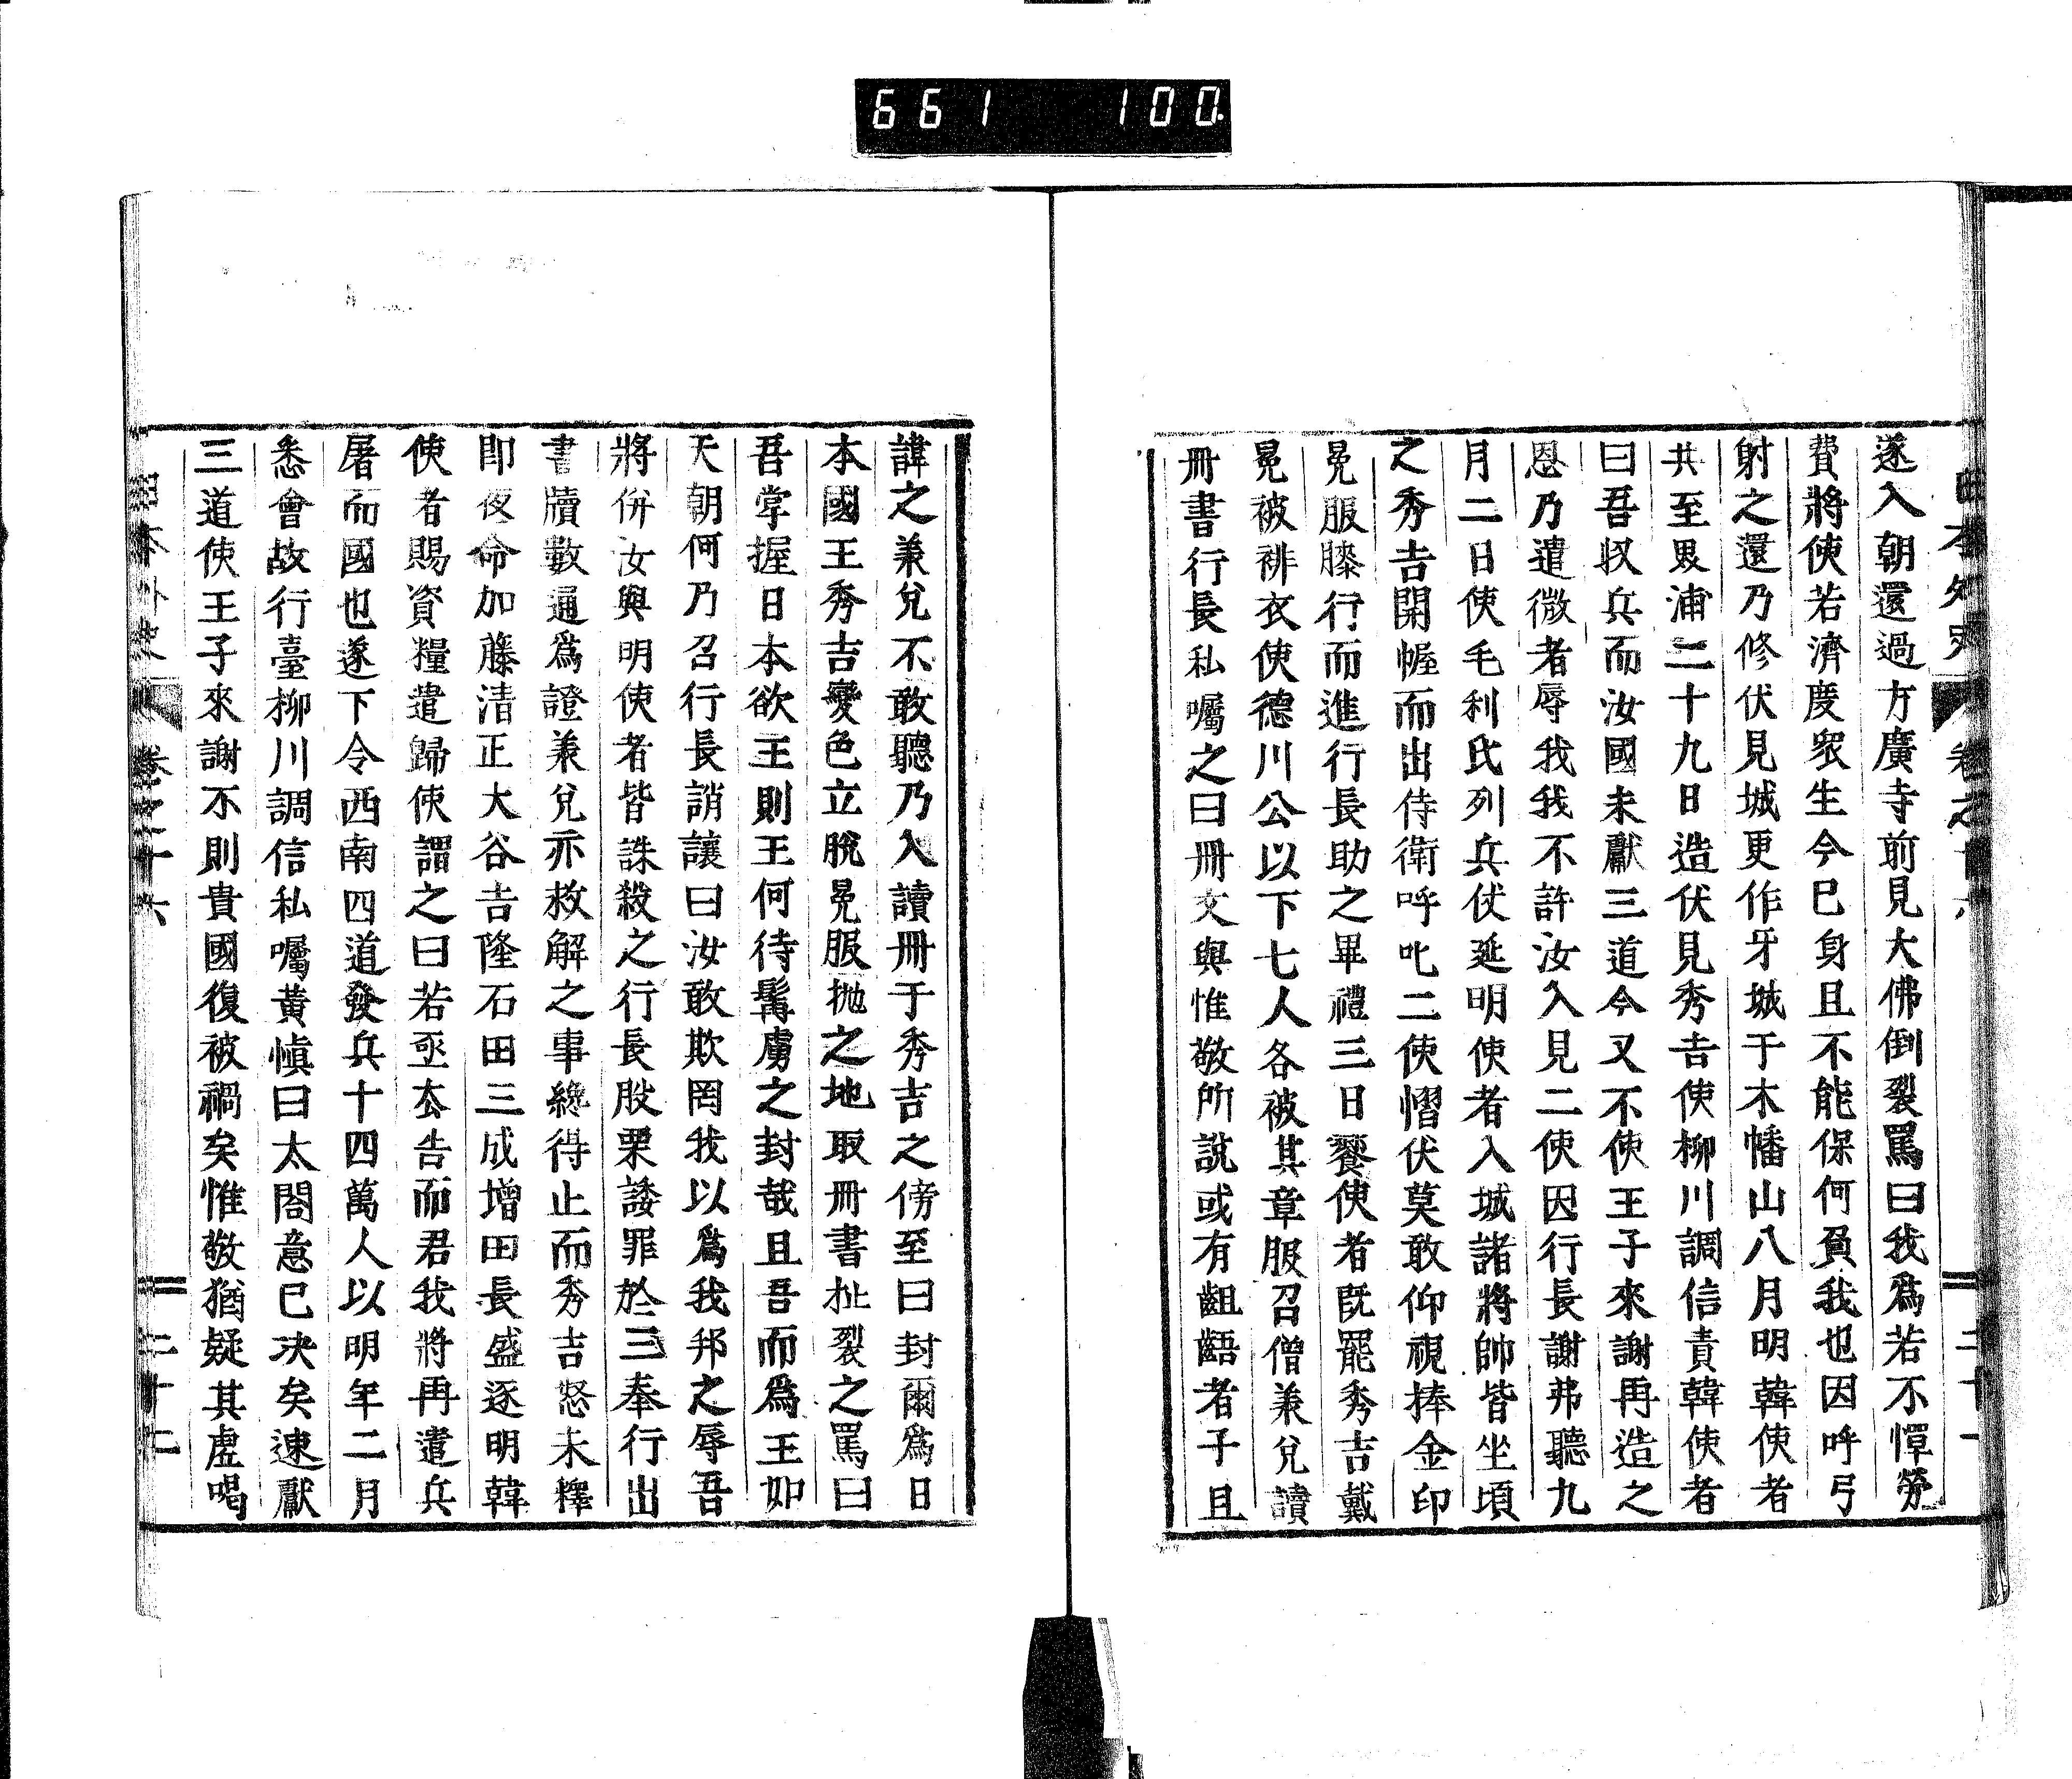 661 100.
日本外史 卷之十六 二十一
遂入朝還過方廣寺前見大佛倒裂罵曰我爲若不憚勞
費將使若濟度衆生今已身且不能保何負我也因呼弓
射之還乃修伏見城更作牙城于木幡山八月明韓使者
共至界浦二十九日造伏見秀吉使柳川調信責韓使者
曰吾収兵而汝國未獻三道今又不使王子來謝再造之
恩乃遣微者辱我我不許汝入見二使因行長謝弗聽九
月二日使毛利氏列兵仗延明使者入城諸將帥皆坐頃
之秀吉開幄而出侍衛呼叱二使慴伏莫敢仰視捧金印
冕服膝行而進行長助之畢禮三日饗使者既罷秀吉戴
冕被緋衣使德川公以下七人各被其章服召僧兼兌讀
冊書行長私囑之曰冊文與惟敬所說或有齟齬者子且
諱之兼兌不敢聽乃入讀冊于秀吉之傍至曰封爾爲日
本國王秀吉變色立脫冕服抛之地取冊書扯裂之罵曰
吾掌握日本欲王則王何待髯虜之封哉且吾而爲王如
天朝何乃召行長誚讓曰汝敢欺罔我以爲我邦之辱吾
將併汝與明使者皆誅殺之行長股栗諉罪於三奉行出
書牘數通爲證兼兌亦救解之事纔得止而秀吉怒未釋
即夜命加藤清正大谷吉隆石田三成增田長盛逐明韓
使者賜資糧遣歸使謂之曰若亟去告而君我將再遣兵
屠而國也遂下令西南四道發兵十四萬人以明年二月
悉會故行臺柳川調信私囑黃愼曰太閤意已决矣速獻
三道使王子來謝不則貴國復被禍矣惟敬猶疑其虛喝
日本外史 卷之十六 二十二